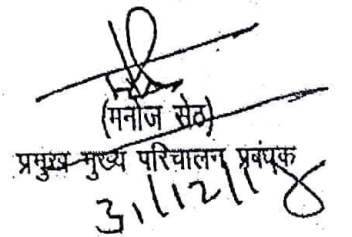 (मनोज सेठ)
प्रमुख मुख्य परिचालन प्रबंधक
31/12/18